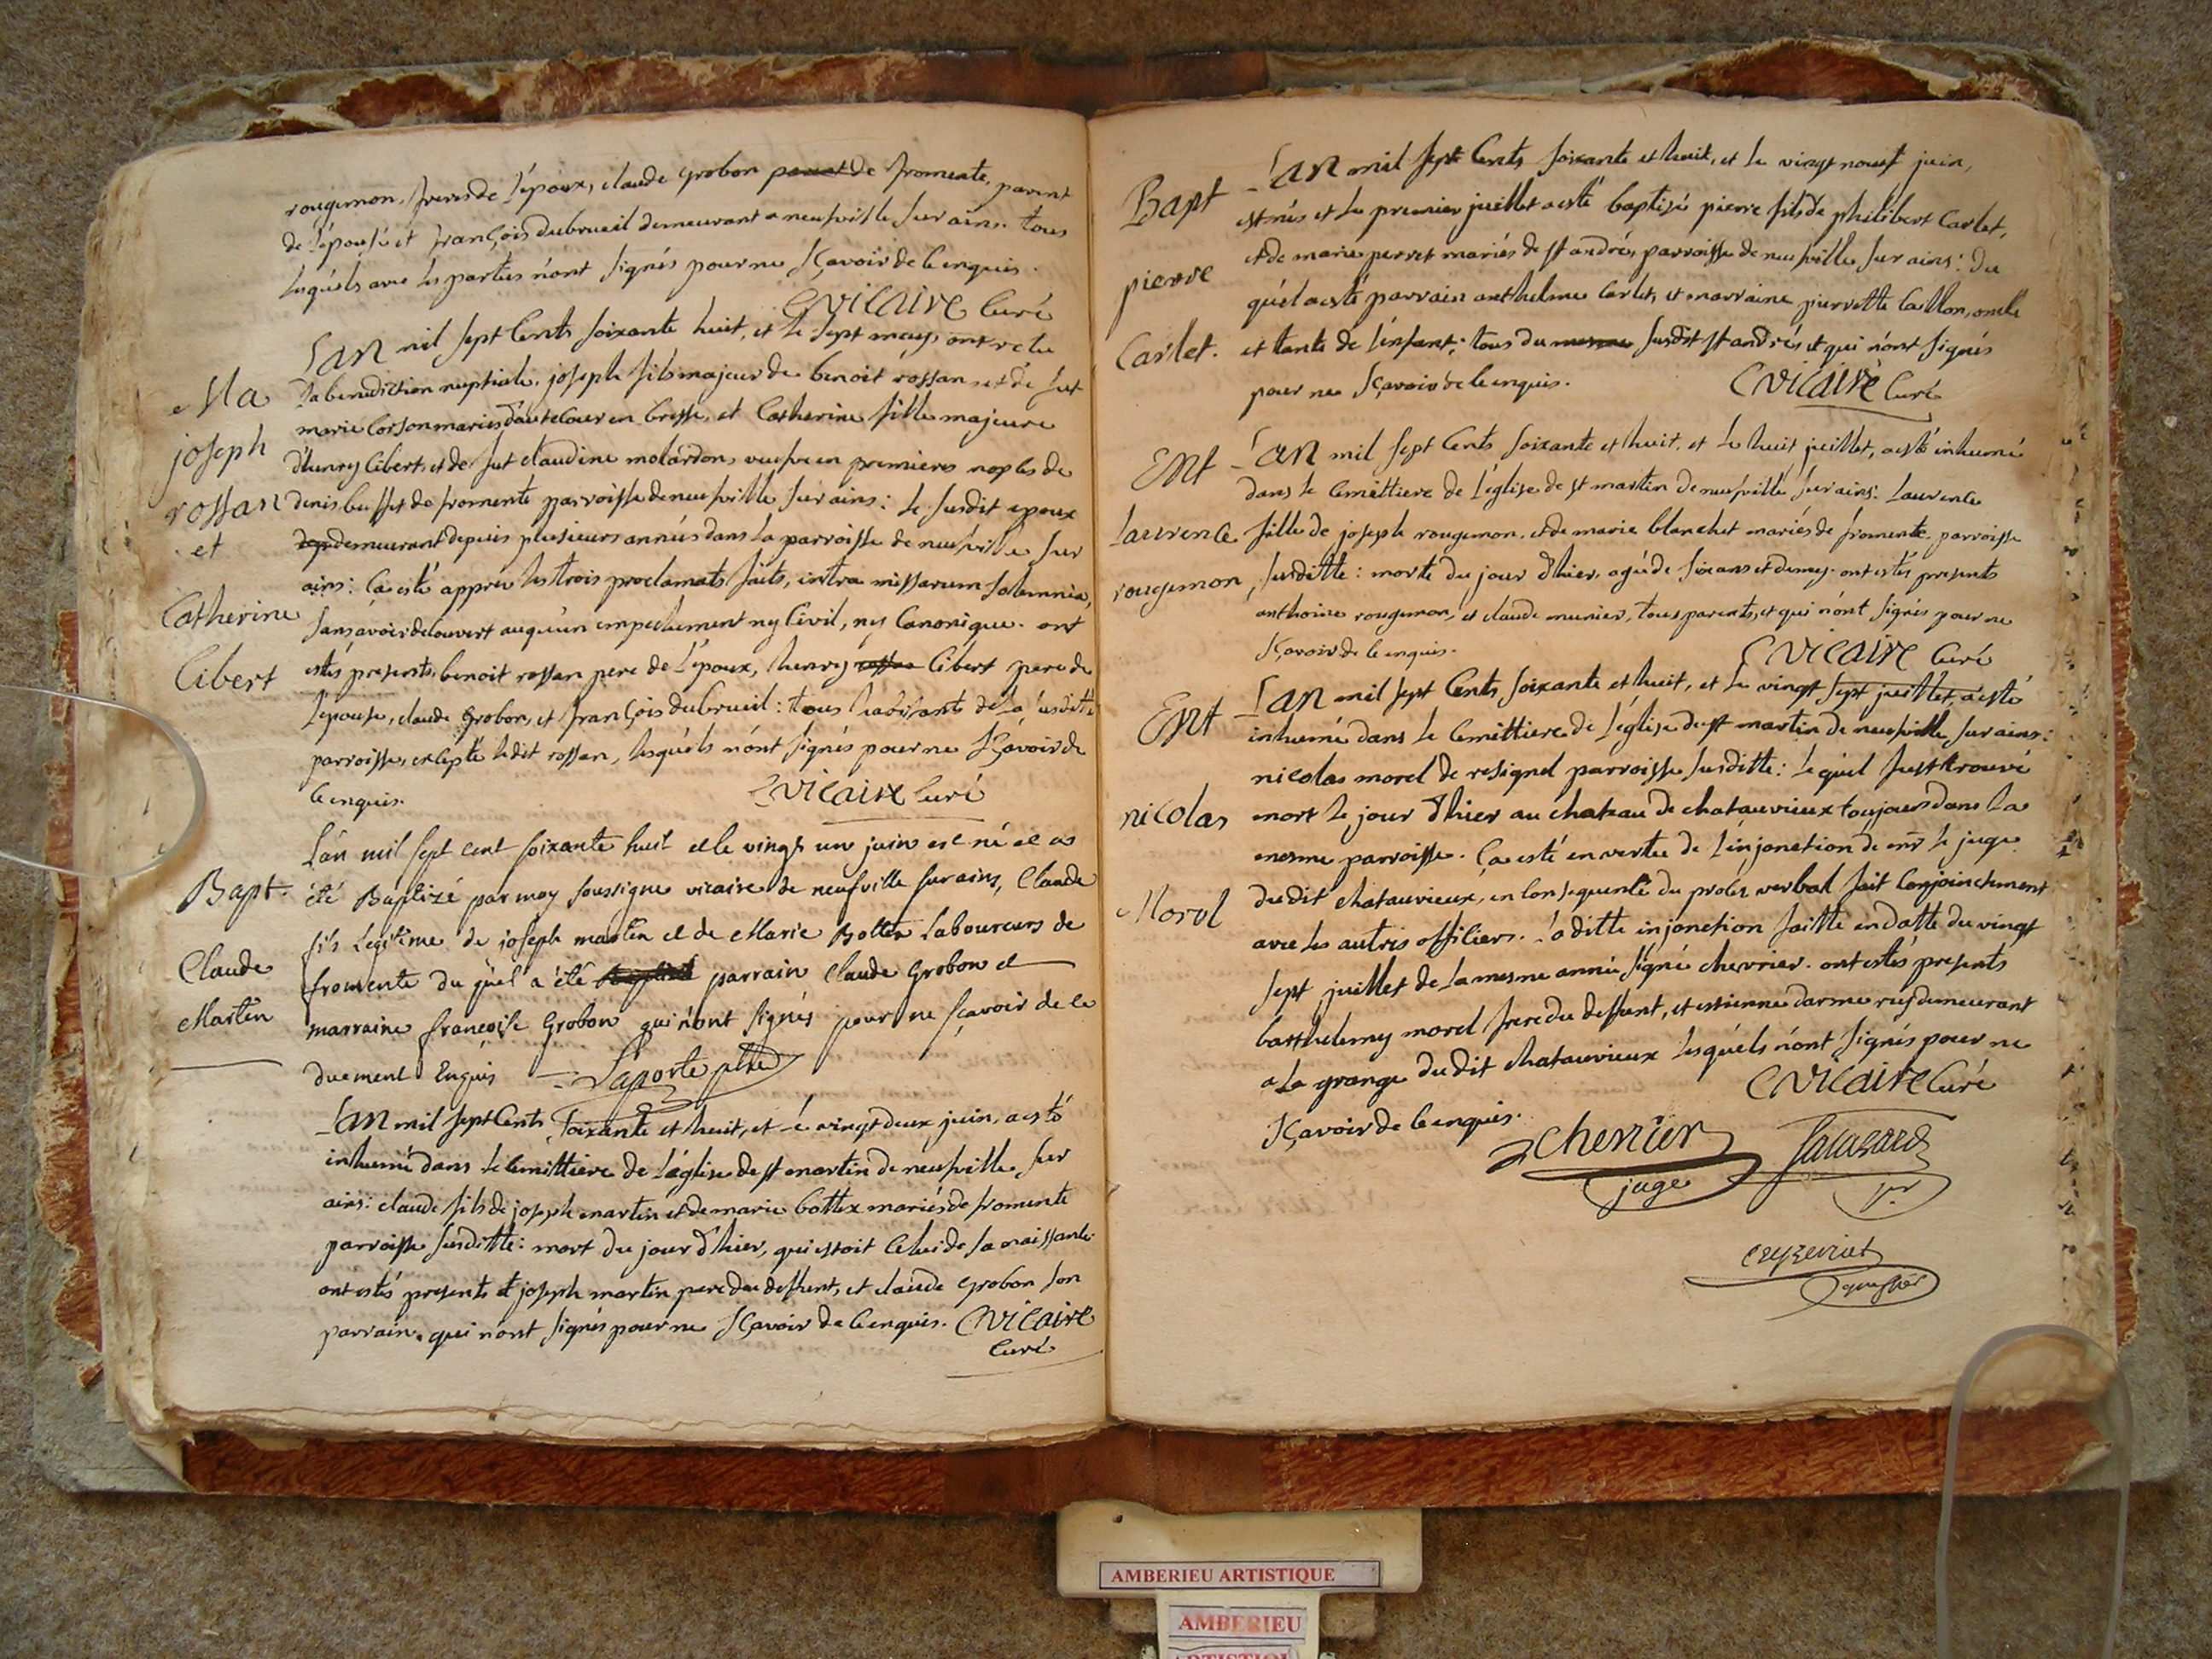 rougemon, freres de l'époux, claude grobon parent de fromente, parent
de l'épousé et françois dubrueil demeurant a neufville sur ains. tous
lesquéls avec les parties n'ont signés pour ne sçavoir de ce enquis.
CVICAIRE curé
Ma
joseph
rossan
et
Catherine
Cibert
L'AN mil sept cents soixante huit, et le sept may, ont reçu
la benediction nuptiale. joseph fils majeur de benoit rossan et de fut
marie corson mariés d'autecour en bresse, et Catherine fille majeure
d'henry Cibert, et de fut claudine molardon, veufve en premieres nopces de
denis buffet de fromente parroisse de neufville sur ains: le susdit epoux
demeurant depuis plusieurs années dans la parroisse de neufville sur
ains: ça esté apprès les trois proclamats faits, intra missarum solemnia,
sans avoir decouvert auquún empechement ny Civil, ny Canonique. ont
estés presents. benoit rossan pere de l'époux, henry Cibert pere de
l'épouse, claude grobon, et françois dubrueil: tous habitants de la susditte
parroisse, excepté ledit rossan, lesquéls n'ont signés pour ne sçavoir de
ce enquis.
CVICAIRE curé
Bapt.
Claude
Martin
L'an mil sept cent soixante huit et le vingt un juin est né et a
été Baptizé par moy soussigné vicaire de neufville sur ains, Claude
fils légitime de joseph martin et de Marie Bottex Laboureurs de
fromente du quel a été parrain Claude Grobon et
marraine françoise Grobon qui n'ont signés pour ne sçavoir de ce
duement Enquis Laporte ptre
L'AN mil sept cents soixante et huit, et le vingt deux juin, a esté
inhumé dans le cemittiere de l'église de st martin de neufville sur
ains: claude fils de joseph martin et de marie bottex mariés de fromente
parroisse susditte: mort du jour d'hier, qui estoit celui de sa naissance
ont estés presents et joseph martin pere du deffunt, et claude grobon son
parrain. qui n'ont signés pour ne sçavoir de ce enquis. CVICAIRE
curé
Bapt
pierre
Carlet.
L'AN mil sept cents soixante et huit, et le vingt neuf juin,
est nés et le premier juillet a esté baptisé pierre fils de philibert Carlet,
et de marie perret mariés de st andrés, parroisse de neufville sur ains: du
quél a esté parrain anthelme Carlet, et marraine pierrette Caillon, oncle
et tante de l'enfant; tous du susdit st andrés et qui n'ont signés
pour ne sçavoir de ce enquis.
CVICAIRE curé
Ent
Laurence
rougemon
L'AN mil sept cents soixante et huit, et le huit juillet, a esté inhumé
dans le cemittiere de l'église de st martin de neufville sur ains: Laurence
fille de joseph rougemon, et de marie blanchet mariés de fromente, parroisse
susditte: morte du jour d'hier, agée de six ans et demy. ont estés presents
anthoine rougemon, et claude munier, tous parents, et qui n'ont signés pour ne
sçavoir de ce enquis.
CVICAIRE curé
Ent
nicolas
Morel
L'AN mil sept cents soixante et huit, et le vingt sept juillet, a esté
inhumé dans le cemittiere de l'église de st martin de neufville sur ains:
nicolas morel de resignel parroisse susditte: lequél fust trouvé
mort le jour d'hier au chateau de chatauvieux toujours dans la
mesme parroisse. ça esté en vertu de l'injonction de mr le juge
dudit chatauvieux, en consequence du procez verbal fait conjoinctement
avec les autres officiers. Laditte injonction faitte en datte du vingt
sept juillet de la mesme année signé chevrier. ont estés presents
barthelemy morel frere du deffunt, et estienne darmeruy demeurant
a la grange dudit chatauvieux lesquéls n'ont signés pour ne
sçavoir de ce enquis.
CVICAIRE Curé
Chevrier
juge
AMBERIEU ARTISTIQUE
AMBERIEU
ARTISTIQUE